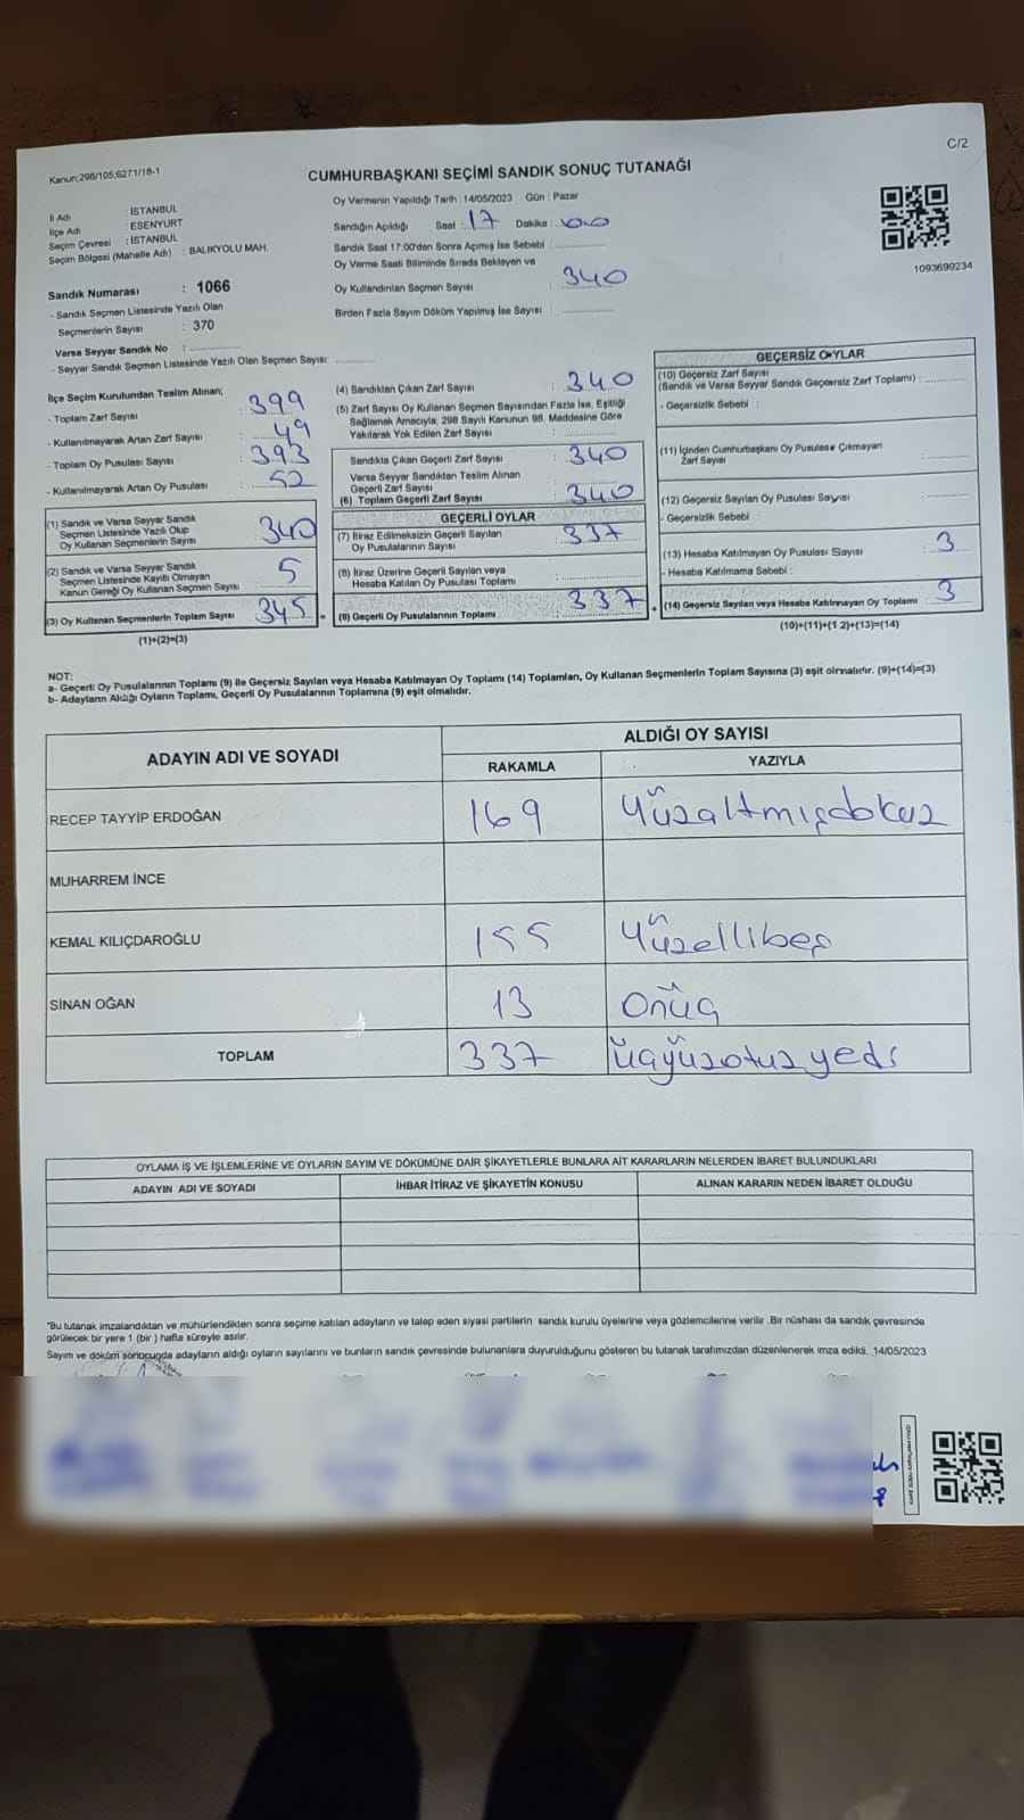 C/2
Kanun:298/105,6271/18-1
CUMHURBAŞKANI SEÇİMİ SANDIK SONUÇ TUTANAĞI
İl Adı : İSTANBUL
İlçe Adı : ESENYURT
Seçim Çevresi : İSTANBUL
Seçim Bölgesi (Mahalle Adı) : BALIKYOLU MAH.
Sandık Numarası : 1066
- Sandık Seçmen Listesinde Yazılı Olan
Seçmenlerin Sayısı : 370
Varsa Seyyar Sandık No :
- Seyyar Sandık Seçmen Listesinde Yazılı Olan Seçmen Sayısı:
Oy Vermenin Yapıldığı Tarih : 14/05/2023 Gün : Pazar
Sandığın Açıldığı Saat : 17 Dakika : 00
Sandık Saat 17:00'den Sonra Açımış İse Sebebi :
Oy Verme Saati Bitiminde Sırada Bekleyen ve
Oy Kullandırılan Seçmen Sayısı : 340
Birden Fazla Sayım Döküm Yapılmış İse Sayısı :
1093699234
İlçe Seçim Kurulundan Teslim Alınan;
- Toplam Zarf Sayısı : 399
- Kullanılmayarak Artan Zarf Sayısı : 49
- Toplam Oy Pusulası Sayısı : 393
- Kullanılmayarak Artan Oy Pusulası : 52
(1) Sandık ve Varsa Seyyar Sandık
Seçmen Listesinde Yazılı Olup
Oy Kullanan Seçmenlerin Sayısı 340
(2) Sandık ve Varsa Seyyar Sandık
Seçmen Listesinde Kayıtlı Olmayan
Kanun Gereği Oy Kullanan Seçmen Sayısı 5
(3) Oy Kullanan Seçmenlerin Toplam Sayısı 345 =
(1)+(2)=(3)
(4) Sandıktan Çıkan Zarf Sayısı : 340
(5) Zarf Sayısı Oy Kullanan Seçmen Sayısından Fazla İse, Eşitliği
Sağlamak Amacıyla, 298 Sayılı Kanunun 98. Maddesine Göre
Yakılarak Yok Edilen Zarf Sayısı :
Sandıkta Çıkan Geçerli Zarf Sayısı : 340
Varsa Seyyar Sandıktan Teslim Alınan
Geçerli Zarf Sayısı :
(6) Toplam Geçerli Zarf Sayısı : 340
GEÇERLİ OYLAR
(7) İtiraz Edilmeksizin Geçerli Sayılan
Oy Pusulalarının Sayısı : 337
(8) İtiraz Üzerine Geçerli Sayılan veya
Hesaba Katılan Oy Pusulası Toplamı :
(9) Geçerli Oy Pusulalarının Toplamı : 337 +
GEÇERSİZ OYLAR
(10) Geçersiz Zarf Sayısı
(Sandık ve Varsa Seyyar Sandık Geçersiz Zarf Toplamı) :
- Geçersizlik Sebebi :
(11) İçinden Cumhurbaşkanı Oy Pusulası Çıkmayan
Zarf Sayısı :
(12) Geçersiz Sayılan Oy Pusulası Sayısı
- Geçersizlik Sebebi
(13) Hesaba Katılmayan Oy Pusulası Sayısı : 3
- Hesaba Katılmama Sebebi :
(14) Geçersiz Sayılan veya Hesaba Katılmayan Oy Toplamı 3
(10)+(11)+(12)+(13)=(14)
NOT:
a- Geçerli Oy Pusulalarının Toplamı (9) ile Geçersiz Sayılan veya Hesaba Katılmayan Oy Toplamı (14) Toplamları, Oy Kullanan Seçmenlerin Toplam Sayısına (3) eşit olmalıdır. (9)+(14)=(3)
b- Adayların Aldığı Oyların Toplamı, Geçerli Oy Pusulalarının Toplamına (9) eşit olmalıdır.
ADAYIN ADI VE SOYADI
ALDIĞI OY SAYISI
RAKAMLA YAZIYLA
RECEP TAYYİP ERDOĞAN 169 Yüzaltmışdokuz
MUHARREM İNCE
KEMAL KILIÇDAROĞLU 155 Yüzellibeş
SİNAN OĞAN 13 Onüç
TOPLAM 337 üçyüzotuzyedi
OYLAMA İŞ VE İŞLEMLERİNE VE OYLARIN SAYIM VE DÖKÜMÜNE DAİR ŞİKAYETLERLE BUNLARA AİT KARARLARIN NELERDEN İBARET BULUNDUKLARI
ADAYIN ADI VE SOYADI İHBAR İTİRAZ VE ŞİKAYETİN KONUSU ALINAN KARARIN NEDEN İBARET OLDUĞU
*Bu tutanak imzalandıktan ve mühürlendikten sonra seçime katılan adayların ve talep eden siyasi partilerin sandık kurulu üyelerine veya gözlemcilerine verilir. Bir nüshası da sandık çevresinde
görülecek bir yere 1 (bir) hafta süreyle asılır.
Sayım ve döküm sonucunda adayların aldığı oyların sayılarını ve bunların sandık çevresinde bulunanlara duyurulduğunu gösteren bu tutanak tarafımızdan düzenlenerek imza edildi. 14/05/2023